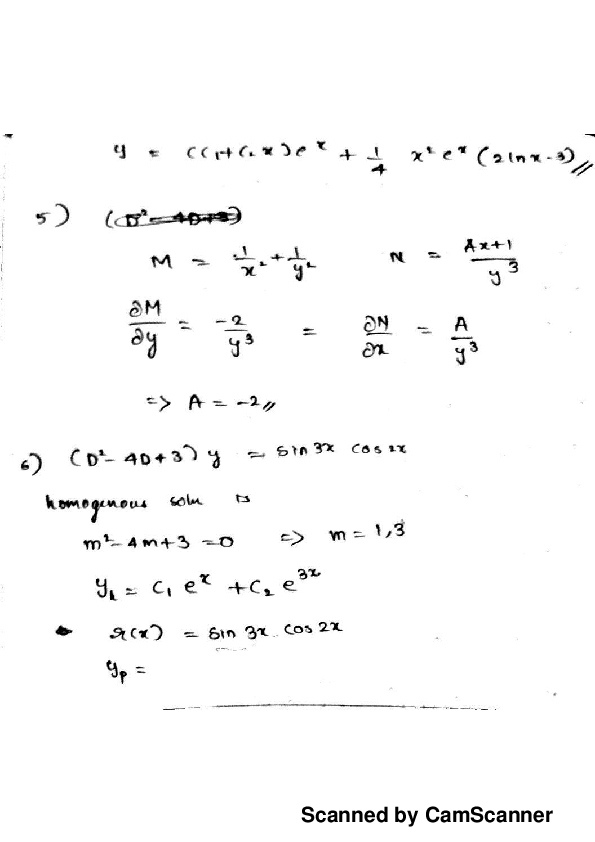 y = (C1+C2x)e^x + 1/4 x²e^x (2lnx-3)//
5) (D²-4D+3)
M = 1/x² + 1/y² N = Ax+1/y³
∂M/∂y = -2/y³ = ∂N/∂x = A/y³
=> A = -2//
6) (D²-4D+3) y = sin3x cos2x
homogenous soln is
m²-4m+3=0 => m=1,3
y_h = C1 e^x + C2 e^3x
r(x) = sin 3x cos 2x
y_p =
Scanned by CamScanner